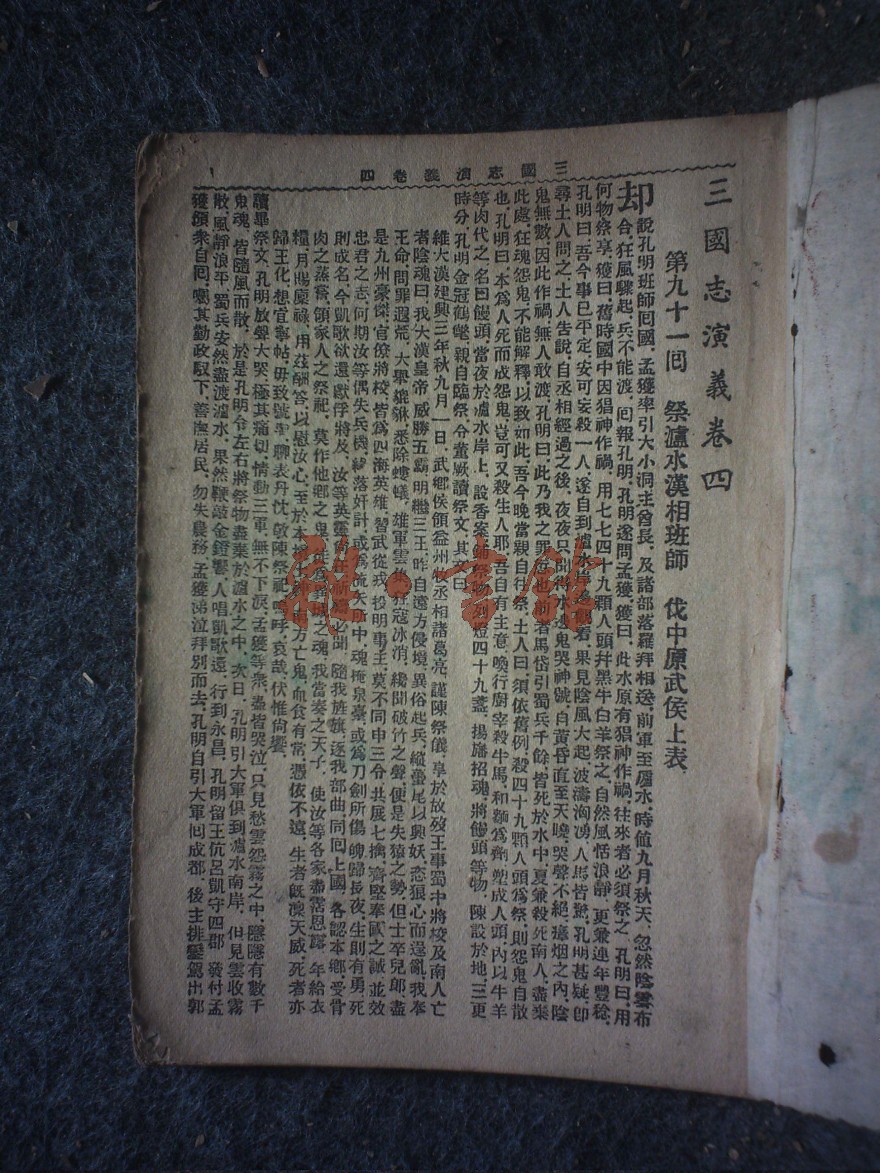 三國志演義卷四
三國志演義卷四
第九十一囘　祭瀘水漢相班師　伐中原武侯上表
却說孔明班師囘國，孟獲率引大小洞主酋長，及諸部落羅拜相送，前軍至瀘水，時値九月秋天，忽然陰雲布
合，狂風驟起，兵不能渡，囘報孔明，孔明遂問孟獲，獲曰，此水原有猖神作禍，往來者必須祭之，孔明曰，用
何物祭享，獲曰，舊時國中因猖神作禍，用七七四十九顆人頭幷黑牛白羊祭之，自然風恬浪靜，更兼連年豐稔，
孔明曰，吾今事已平定，安可妄殺一人，遂自到瀘水岸邊觀看，果見陰風大起，波濤洶湧，人馬皆驚，孔明甚疑，卽
尋土人問之，土人告說，自丞相經過之後，夜夜只聞得水邊鬼哭神號，自黃昏直至天曉，哭聲不絕，瘴烟之內，陰
鬼無數，因此作禍，無人敢渡，孔明曰，此乃我之罪愆也，前者馬岱引蜀兵千餘，皆死於水中，更兼殺死南人，盡棄
此處，狂魂怨鬼，不能解釋，以致如此，吾今晚當親自行祭，土人曰，須依舊例，殺四十九顆人頭爲祭，則怨鬼自散
也，孔明曰，本爲人死而成怨鬼，豈可又殺生人耶，吾自有主意，喚行廚宰殺牛馬，和麵爲劑，塑成人頭，內以牛羊
等肉代之，名曰饅頭，當夜於瀘水岸上，設香案，鋪祭物，列燈四十九盞，揚旛招魂，將饅頭等物，陳設於地，三更
時分，孔明金冠鶴氅，親自臨祭，令董厥讀祭文，其文曰
維大漢建興三年秋九月一日，武鄉侯領益州牧丞相諸葛亮，謹陳祭儀，享於故歿王事蜀中將校及南人亡
者陰魂曰，我大漢皇帝，威勝五霸，明繼三王，昨自遠方侵境，異俗起兵，縱蠆尾以興妖，恣狼心而逞亂，我奉
王命，問罪遐荒，大舉貔貅，悉除螻蟻，雄軍雲集，狂寇冰消，纔聞破竹之聲，便是失猿之勢，但士卒兒郎，盡
是九州豪傑，官僚將校，皆爲四海英雄，習武從戎，投明事主，莫不同申三令，共展七擒，齊堅奉國之誠，並效
忠君之志，何期汝等偶失兵機，緣落奸計，或爲流矢所中，魂掩泉臺，或爲刀劍所傷，魄歸長夜，生則有勇，死
則成名，今凱歌欲還，獻俘將及，汝等英靈尙在，祈禱必聞，隨我旌旗，逐我部曲，同囘上國，各認本鄉，受骨
肉之蒸嘗，領家人之祭祀，莫作他鄉之鬼，徒爲異域之魂，我當奏之天子，使汝等各家，盡霑恩露，年給衣
糧，月賜廩祿，用茲酬答，以慰汝心，至於本境土神，南方亡鬼，血食有常，憑依不遠，生者旣凜天威，死者亦
歸王化，想宜寧帖，毋致號咷，聊表丹忱，敬陳祭祀，嗚呼，哀哉，伏惟尙饗，
讀畢祭文，孔明放聲大哭，極其痛切，情動三軍，無不下淚，孟獲等衆，盡皆哭泣，只見愁雲怨霧之中，隱隱有數千
鬼魂，皆隨風而散，於是孔明令左右將祭物盡棄於瀘水之中，次日，孔明引大軍俱到瀘水南岸，但見雲收霧
散，風靜浪平，蜀兵安然盡渡瀘水，果然鞭敲金鐙響，人唱凱歌還，行到永昌，孔明留王伉呂凱守四郡，發付孟
獲領衆自囘，囑其勤政馭下，善撫居民，勿失農務，孟獲涕泣拜別而去，孔明自引大軍囘成都，後主排鑾駕出郭
雜·書館